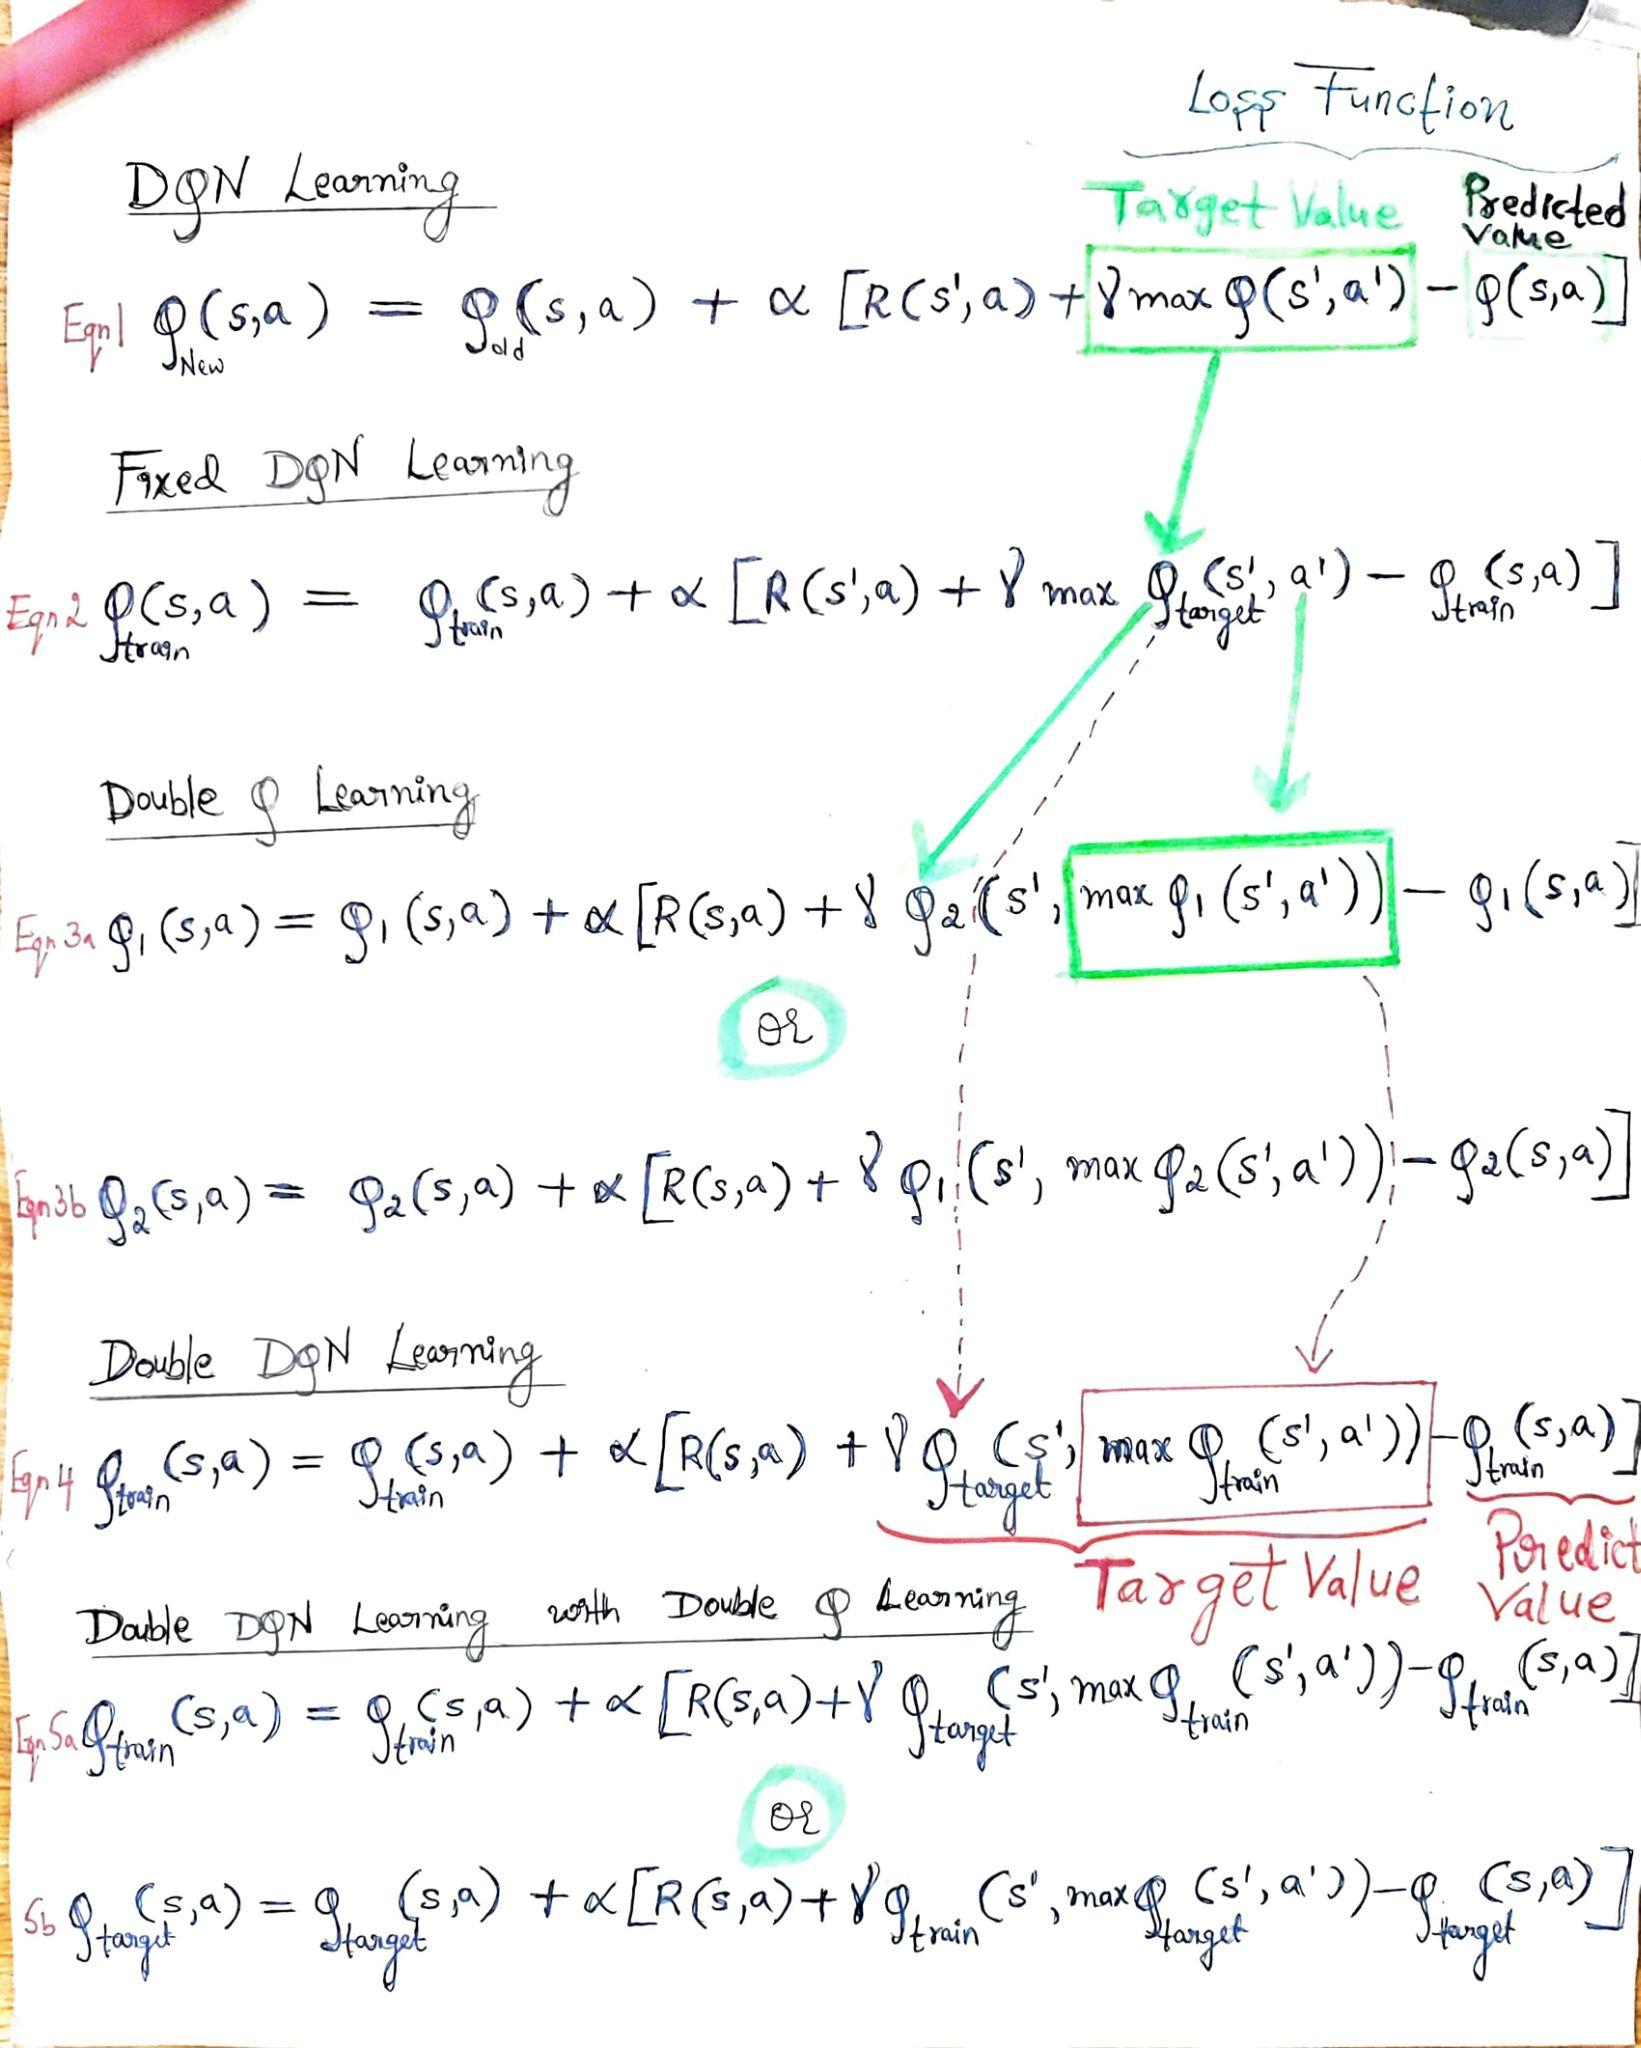 Loss Function
DQN Learning
Target Value Predicted Value
Eqn1 Q(s,a) New = Q(s,a) old + α [R(s',a) + γ max Q(s',a') - Q(s,a)]
Fixed DQN Learning
Eqn 2 Q(s,a) train = Q(s,a) train + α [R(s',a) + γ max Q(s',a') target - Q(s,a) train]
Double Q Learning
Eqn 3a Q1(s,a) = Q1(s,a) + α[R(s,a) + γ Q2(s', max Q1(s',a')) - Q1(s,a)]
or
Eqn3b Q2(s,a) = Q2(s,a) + α[R(s,a) + γ Q1(s', max Q2(s',a')) - Q2(s,a)]
Double DQN Learning
Eqn 4 Qtrain(s,a) = Qtrain(s,a) + α[R(s,a) + γ Qtarget(s', max Qtrain(s',a')) - Qtrain(s,a)]
Target Value Predict Value
Double DQN Learning with Double Q Learning
Eqn 5a Qtrain(s,a) = Qtrain(s,a) + α[R(s,a)+γ Qtarget(s', max Qtrain(s',a')) - Qtrain(s,a)]
or
5b Qtarget(s,a) = Qtarget(s,a) + α[R(s,a)+γ Qtrain(s', max Qtarget(s',a')) - Qtarget(s,a)]